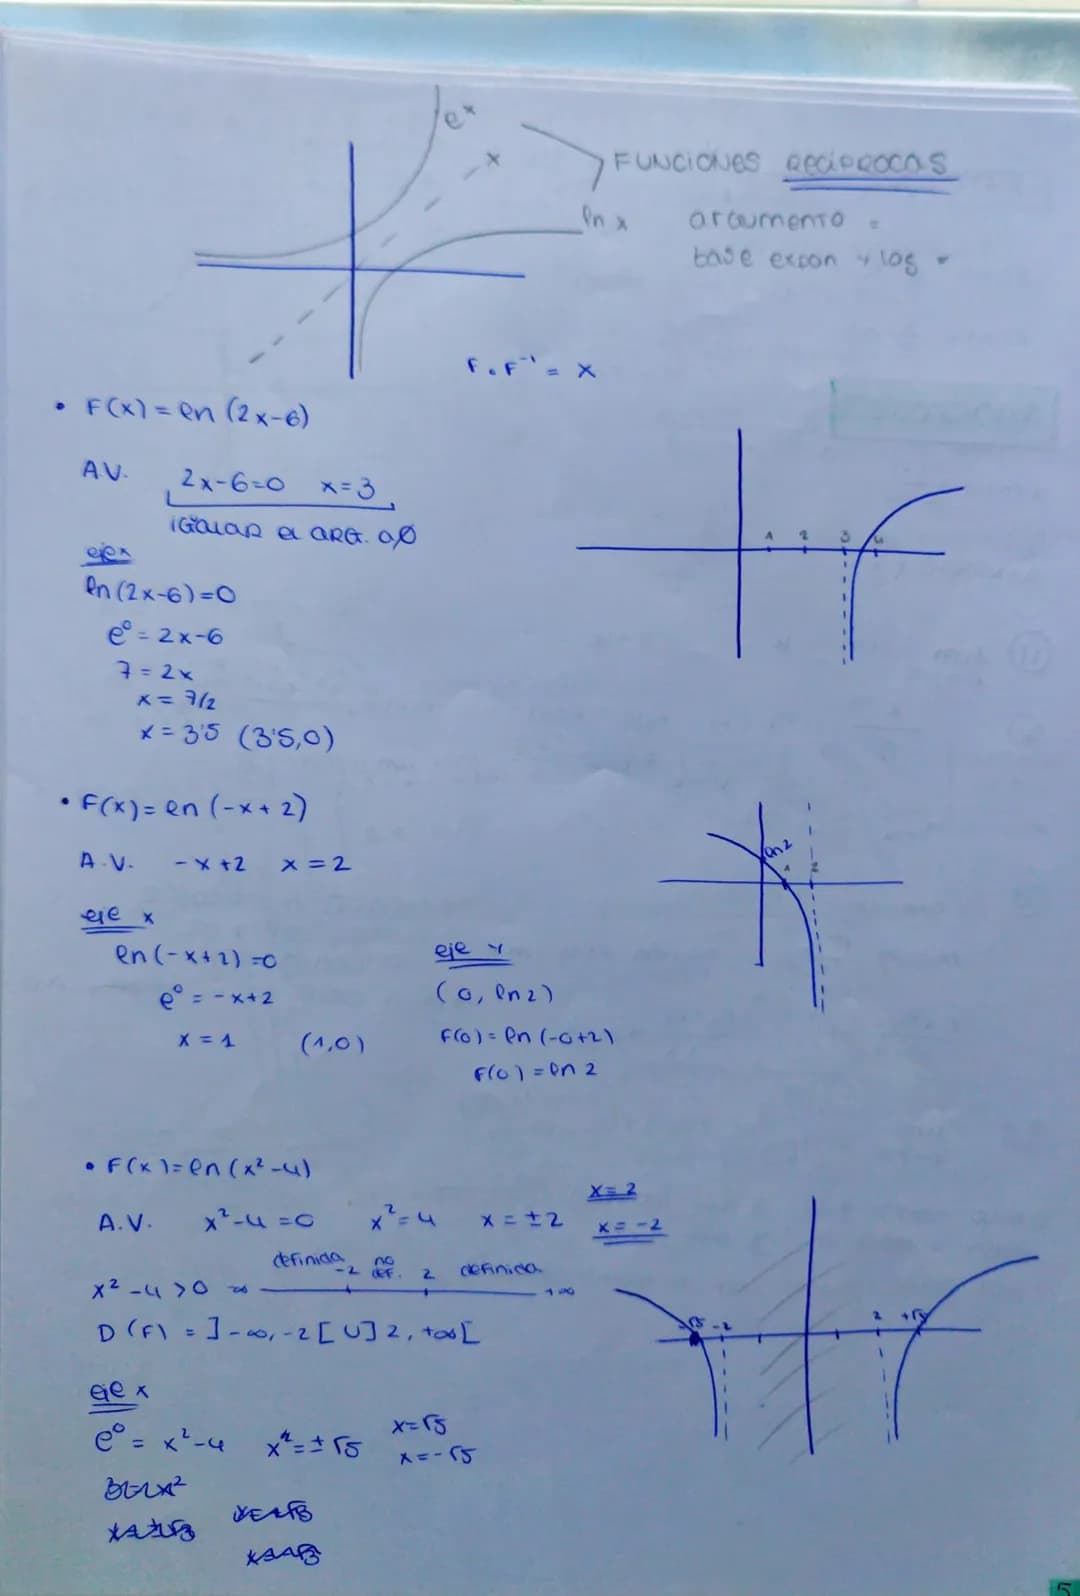 eˣ
x
FUNCIONES RECÍPROCAS
ln x
argumento =
base expon y log =
F∘F⁻¹ = x
• F(x) = ln (2x-6)
A.V. 2x-6=0 x=3
IGUALAR el ARG. a 0
1 2 3 4
eje x
ln(2x-6)=0
e⁰ = 2x-6
7 = 2x
x = 7/2
x = 3'5 (3'5,0)
• F(x) = ln (-x+2)
ln 2
1 2
A.V. -x+2 x=2
eje x
ln(-x+2)=0
e⁰ = -x+2
x = 1 (1,0)
eje y
(0, ln 2)
F(0) = ln (-0+2)
F(0) = ln 2
• F(x) = ln (x²-4)
A.V. x²-4=0 x²=4 x=±2 x=2
x=-2
definida -2 no def. 2 definida
x²-4>0 -∞ +∞
D(F) = ]-∞,-2[ U ]2,+∞[
-√5 -2 2 +√5
eje x
e⁰ = x²-4 x=±√5 x=√5
x=-√5
5